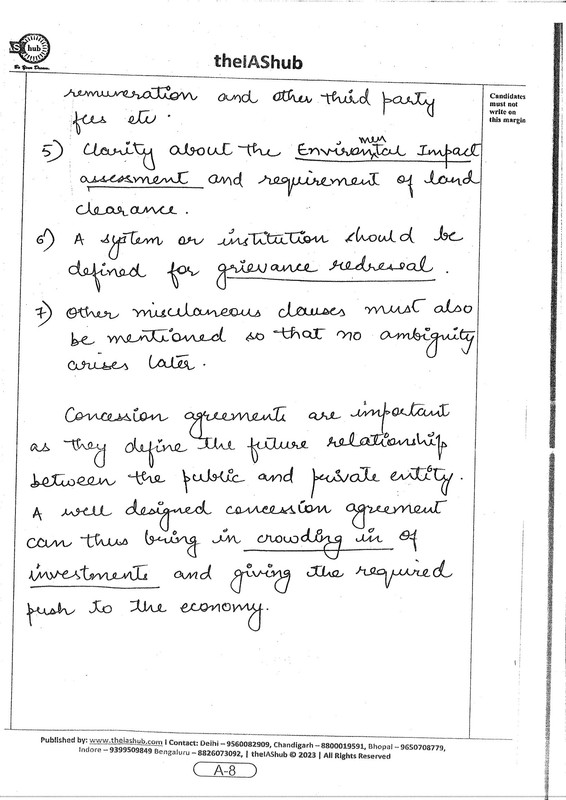 AS hub
Be Your Dream.
theIAShub
Candidates
must not
write on
this margin
remuneration and other third party
fees etc.
5) Clarity about the Environmental Impact
assessment and requirement of land
clearance.
6) A system or institution should be
defined for grievance redressal.
7) Other miscellaneous clauses must also
be mentioned so that no ambiguity
arises later.
Concession agreements are important
as they define the future relationship
between the public and private entity.
A well designed concession agreement
can thus bring in crowding in of
investments and giving the required
push to the economy.
Published by: www.theiashub.com I Contact: Delhi – 9560082909, Chandigarh – 8800019591, Bhopal – 9650708779,
Indore – 9399509849 Bengaluru – 8826073092, | theIAShub © 2023 | All Rights Reserved
A-8